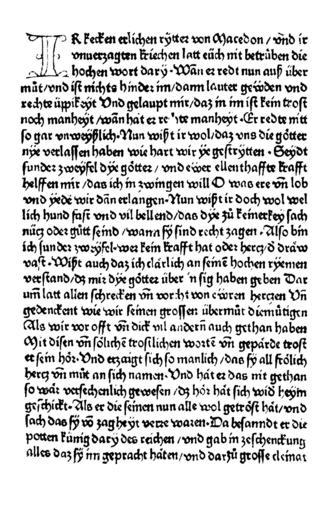 IR kecken erlichen rytter von Macedon / vnd ir
vnuerzagten kriechen latt eüch nit betrüben die
hochen wort dary · Wān er redt nun auß über
müt / vnd ist nichtz hinder im / dann lauter gewden vnd
rechte üppikeyt Vnd gelaupt mir / daz in im ist kein trost
noch manheyt / wān hat er re 'hte manheyt · Er redte mit
so gar vnweyßlich · Nun wißt ir wol / daz vns die götter
nye verlassen haben wie hart wir ye gestrytten · Seydt
sunder zweyfel dye götter / vnd ewer ellenthaffte krafft
helffen mir / das ich in zwingen will O was ere vn̄ lob
vnd yede wir dān erlangen · Nun wißt ir doch wol wel
lich hund fast vnd vil bellend / das dye zü keinerkey sach
nücz oder gütt seind / wann sy sind recht zagen · Also bin
ich sunder zweyfel · wer kein krafft hat oder hercz / d drāw
vast · Wißt auch daz ich clärlich an seine hochen ryemen
verstand / dz mir dye götter über 'n sig haben geben Dar
um̄ latt alien schrecken vn̄ vorcht von ewren herczen Vn̄
gedenckent wie wir seinen grossen übermüt diemütigen
Als wir vor offt vn̄ dick vil andern̄ auch gethan haben
Mit disen vn̄ sölichē trostlichen wortē vn̄ gepärde trost
et sein hör · Vnd erzaigt sich so manlich / das sy all frölich
hercz vn̄ müt an sich namen · Vnd hat er das nit gethan
so wär versechenlich gewesen / dz hör hät sich wid heym
geschickt · Als er die seinen nun alle wol getröst hät / vnd
sach das sy vō zagheyt verre waren · Da besanndt er die
potten künig dary des reichen / vnd gab in zeschenckung
alles daz sy im gepracht häten / vnd darzü grosse cleinat